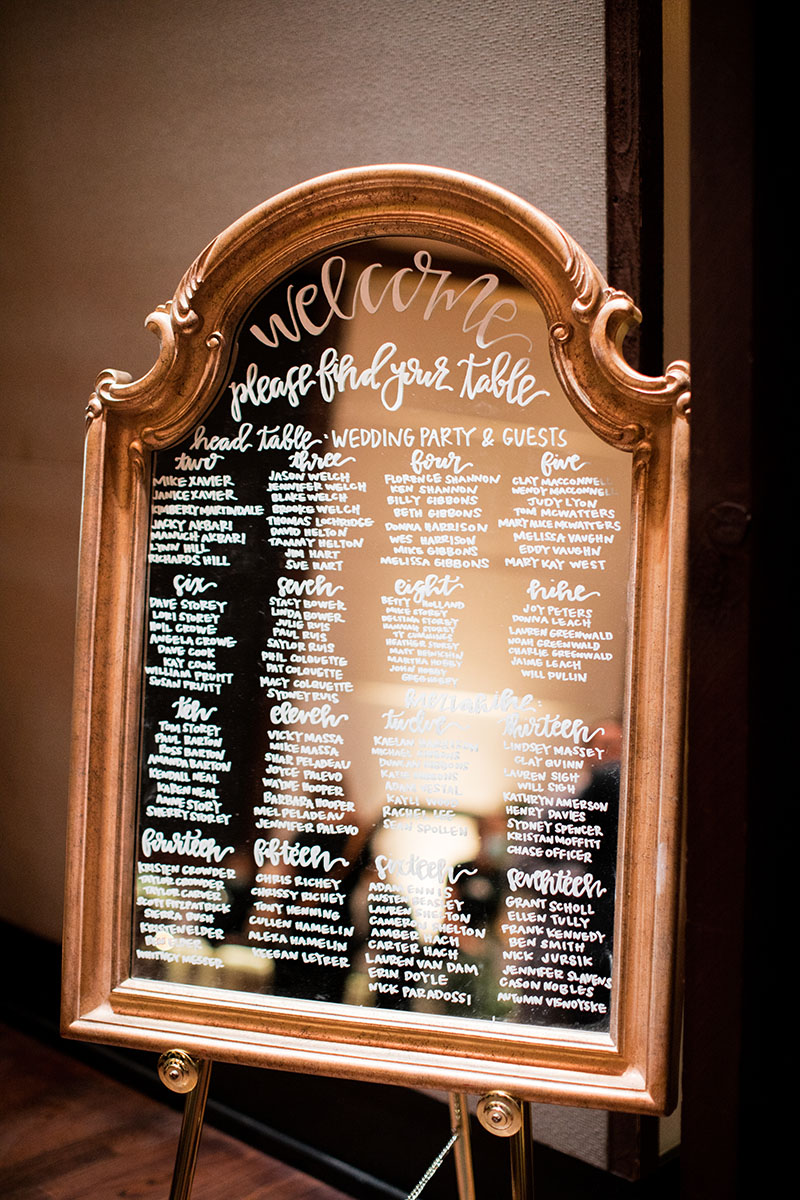 welcome
please find your table
head table: WEDDING PARTY & GUESTS
two
MIKE XAVIER
JANICE XAVIER
KIMBERLY MARTINDALE
JACKY AKBARI
MANUCH AKBARI
LYNN HILL
RICHARDS HILL
three
JASON WELCH
JENNIFER WELCH
BLAKE WELCH
BROOKE WELCH
THOMAS LOCHRIDGE
DAVID HELTON
TAMMY HELTON
JIM HART
SUE HART
four
FLORENCE SHANNON
KEN SHANNON
BILLY GIBBONS
BETH GIBBONS
DONNA HARRISON
WES HARRISON
MIKE GIBBONS
MELISSA GIBBONS
five
CLAY MACCONNELL
WENDY MACCONNELL
JUDY LYON
TOM MCWATTERS
MARY ALICE MCWATTERS
MELISSA VAUGHN
EDDY VAUGHN
MARY KAY WEST
six
DAVE STOREY
LORI STOREY
NEIL CROWE
ANGELA CROWE
DAVE COOK
KAY COOK
WILLIAM PRUITT
SUSAN PRUITT
seven
STACY BOWER
LINDA BOWER
JULIE RUIS
PAUL RUIS
SAYLOR RUIS
PHIL COLQUETTE
PAT COLQUETTE
MACY COLQUETTE
SYDNEY RUIS
eight
BETTY HOLLAND
MIKE STOREY
DELTINA STOREY
HANNAH STOREY
TY CUMMINGS
HEATHER STOREY
MATT
MARTHA HOBBY
JOHN HOBBY
GREG HOBBY
nine
JOY PETERS
DONNA LEACH
LAUREN GREENWALD
NOAH GREENWALD
CHARLIE GREENWALD
JAIME LEACH
WILL PULLIN
ten
TOM STOREY
PAUL BARTON
ROSS BARTON
AMANDA BARTON
KENDALL NEAL
KAREN NEAL
ANNE STORY
SHERRY STOREY
eleven
VICKY MASSA
MIKE MASSA
SHAR PELADEAU
JOYCE PALEVO
WAYNE HOOPER
BARBARA HOOPER
MEL PELADEAU
JENNIFER PALEVO
mezzanine:
twelve
KAELAN
MICHAEL GIBBONS
DUNCAN GIBBONS
KATIE GIBBONS
ADAM VESTAL
KAYLI WOOD
RACHEL LEE
SEAN SPOLLEN
thirteen
LINDSEY MASSEY
CLAY QUINN
LAUREN SIGH
WILL SIGH
KATHRYN AMERSON
HENRY DAVIES
SYDNEY SPENCER
KRISTAN MOFFITT
CHASE OFFICER
fourteen
KRISTEN CROWDER
TAYLOR CROWDER
TAYLOR CARVER
SCOTT FITZPATRICK
SIERRA BUSH
KRISTEN ELDER
ELDER
WHITNEY MESSER
fifteen
CHRIS RICHEY
CHRISSY RICHEY
TONY HENNING
CULLEN HAMELIN
ALEXA HAMELIN
KEEGAN LEYRER
sixteen
ADAM ENNIS
AUSTEN BEASLEY
LAUREN SHELTON
CAMERON SHELTON
AMBER HACH
CARTER HACH
LAUREN VAN DAM
ERIN DOYLE
NICK PARADOSSI
seventeen
GRANT SCHOLL
ELLEN TULLY
FRANK KENNEDY
BEN SMITH
NICK JURSIK
JENNIFER SLAVENS
CASON NOBLES
AUTUMN VISNOYSKE